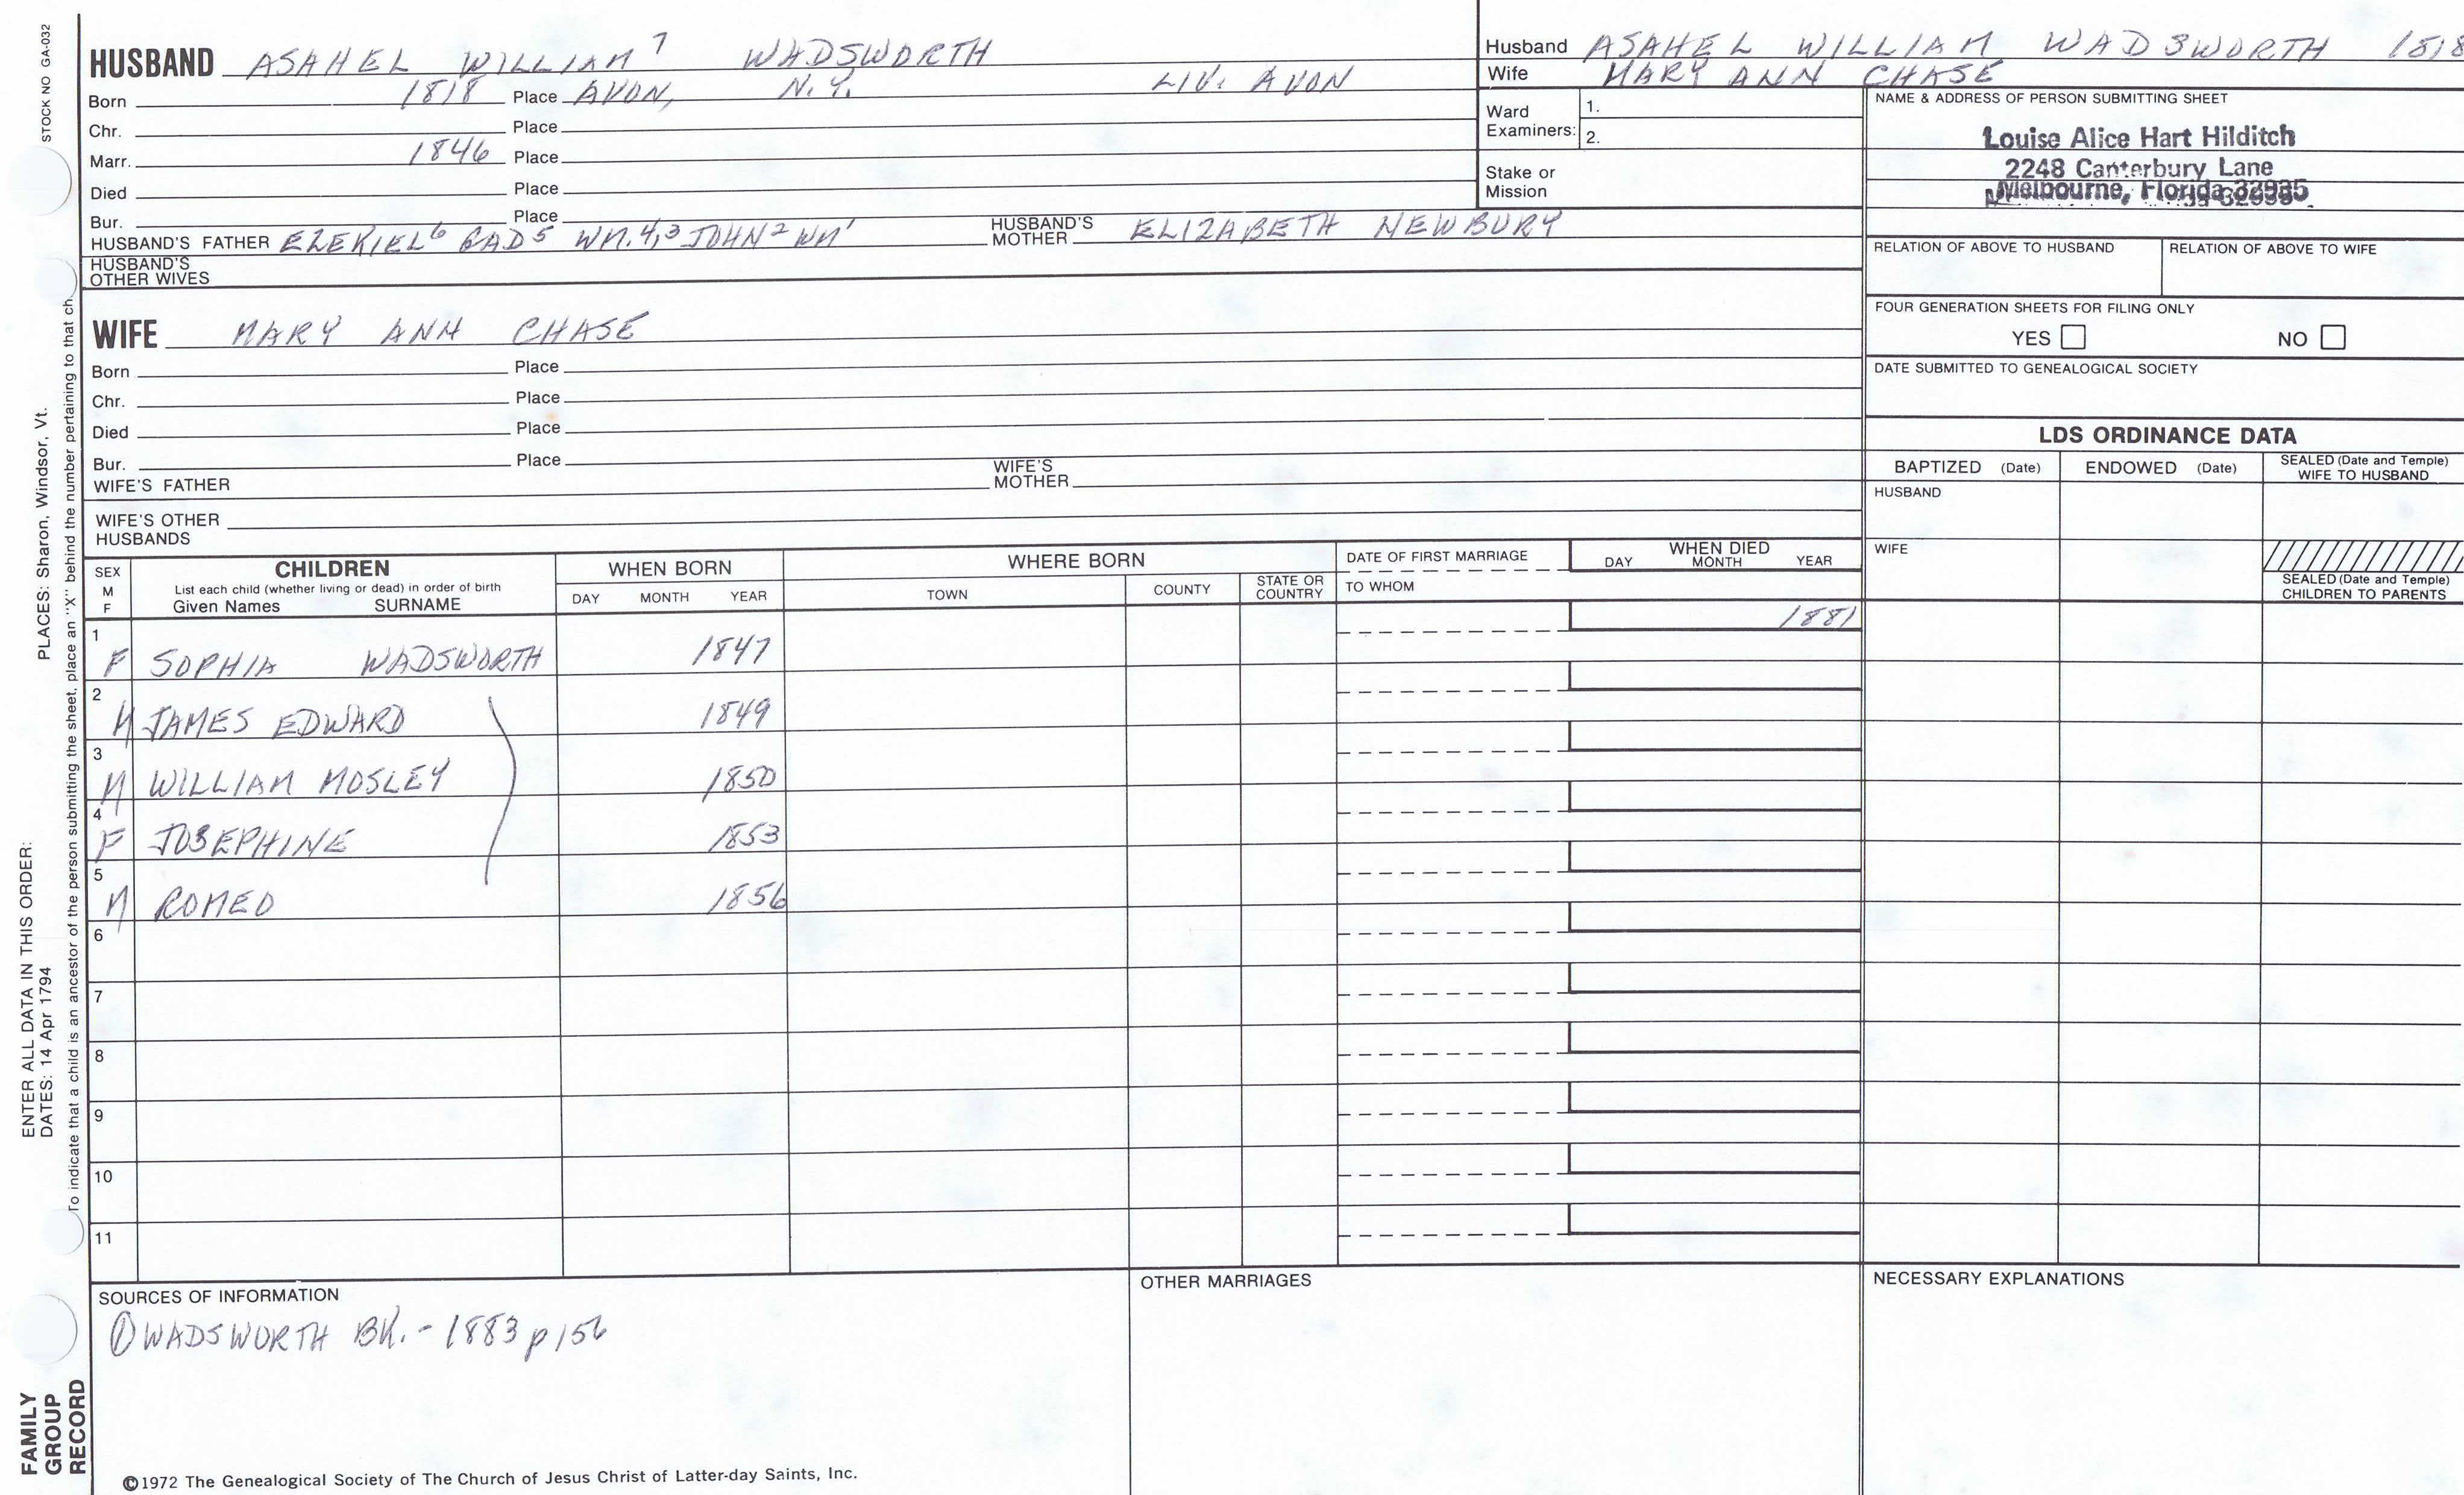 STOCK NO GA-032
HUSBAND ASAHEL WILLIAM⁷ WADSWORTH
Born 1818 Place AVON, N.Y. LIV. AVON
Chr. Place
Marr. 1846 Place
Died Place
Bur. Place
HUSBAND'S FATHER EZEKIEL⁶ GAD⁵ WM.⁴,³ JOHN² WM¹ HUSBAND'S MOTHER ELIZABETH NEWBURY
HUSBAND'S OTHER WIVES
WIFE MARY ANN CHASE
Born Place
Chr. Place
Died Place
Bur. Place
WIFE'S FATHER WIFE'S MOTHER
WIFE'S OTHER HUSBANDS
Husband ASAHEL WILLIAM WADSWORTH 1818
Wife MARY ANN CHASE
Ward Examiners: 1.
2.
Stake or Mission
NAME & ADDRESS OF PERSON SUBMITTING SHEET
Louise Alice Hart Hilditch
2248 Canterbury Lane
Melbourne, Florida 32935
RELATION OF ABOVE TO HUSBAND RELATION OF ABOVE TO WIFE
FOUR GENERATION SHEETS FOR FILING ONLY
YES NO
DATE SUBMITTED TO GENEALOGICAL SOCIETY
LDS ORDINANCE DATA
BAPTIZED (Date) ENDOWED (Date) SEALED (Date and Temple) WIFE TO HUSBAND
HUSBAND
WIFE
SEALED (Date and Temple) CHILDREN TO PARENTS
SEX M F CHILDREN WHEN BORN WHERE BORN DATE OF FIRST MARRIAGE WHEN DIED
List each child (whether living or dead) in order of birth
Given Names SURNAME DAY MONTH YEAR TOWN COUNTY STATE OR COUNTRY TO WHOM DAY MONTH YEAR
1 F SOPHIA WADSWORTH 1847 1881
2 M JAMES EDWARD 1849
3 M WILLIAM MOSLEY 1850
4 F JOSEPHINE 1853
5 M ROMEO 1856
6
7
8
9
10
11
SOURCES OF INFORMATION
① WADSWORTH BK. - 1883 p156
OTHER MARRIAGES
NECESSARY EXPLANATIONS
©1972 The Genealogical Society of The Church of Jesus Christ of Latter-day Saints, Inc.
ENTER ALL DATA IN THIS ORDER:
DATES: 14 Apr 1794 PLACES: Sharon, Windsor, Vt.
To indicate that a child is an ancestor of the person submitting the sheet, place an "X" behind the number pertaining to that ch
FAMILY GROUP RECORD